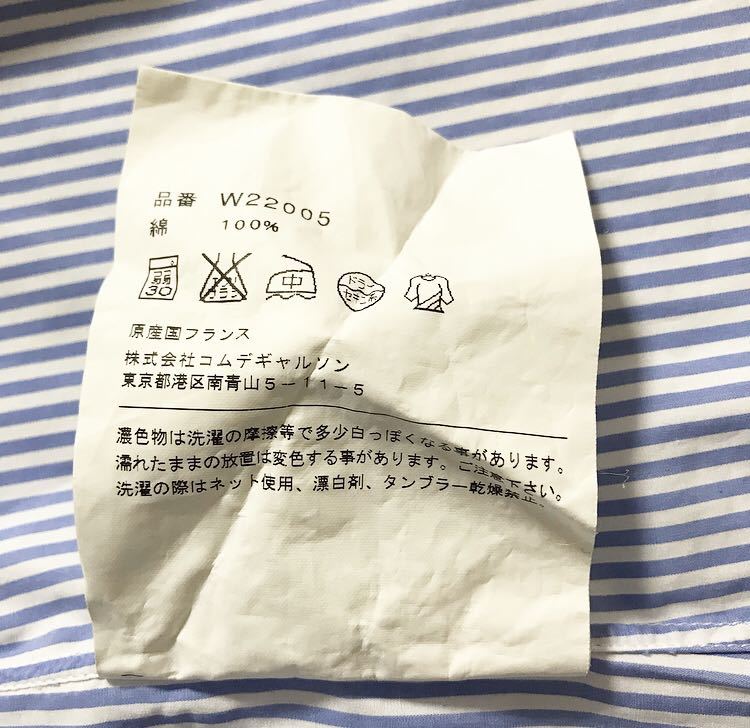 品番 W22005
綿 100%
弱 30
エンソサラシ
中
ドライ セキユ系
原産国フランス
株式会社コムデギャルソン
東京都港区南青山5-11-5
濃色物は洗濯の摩擦等で多少白っぽくなる事があります。
濡れたままの放置は変色する事があります。ご注意下さい。
洗濯の際はネット使用、漂白剤、タンブラー乾燥禁止。